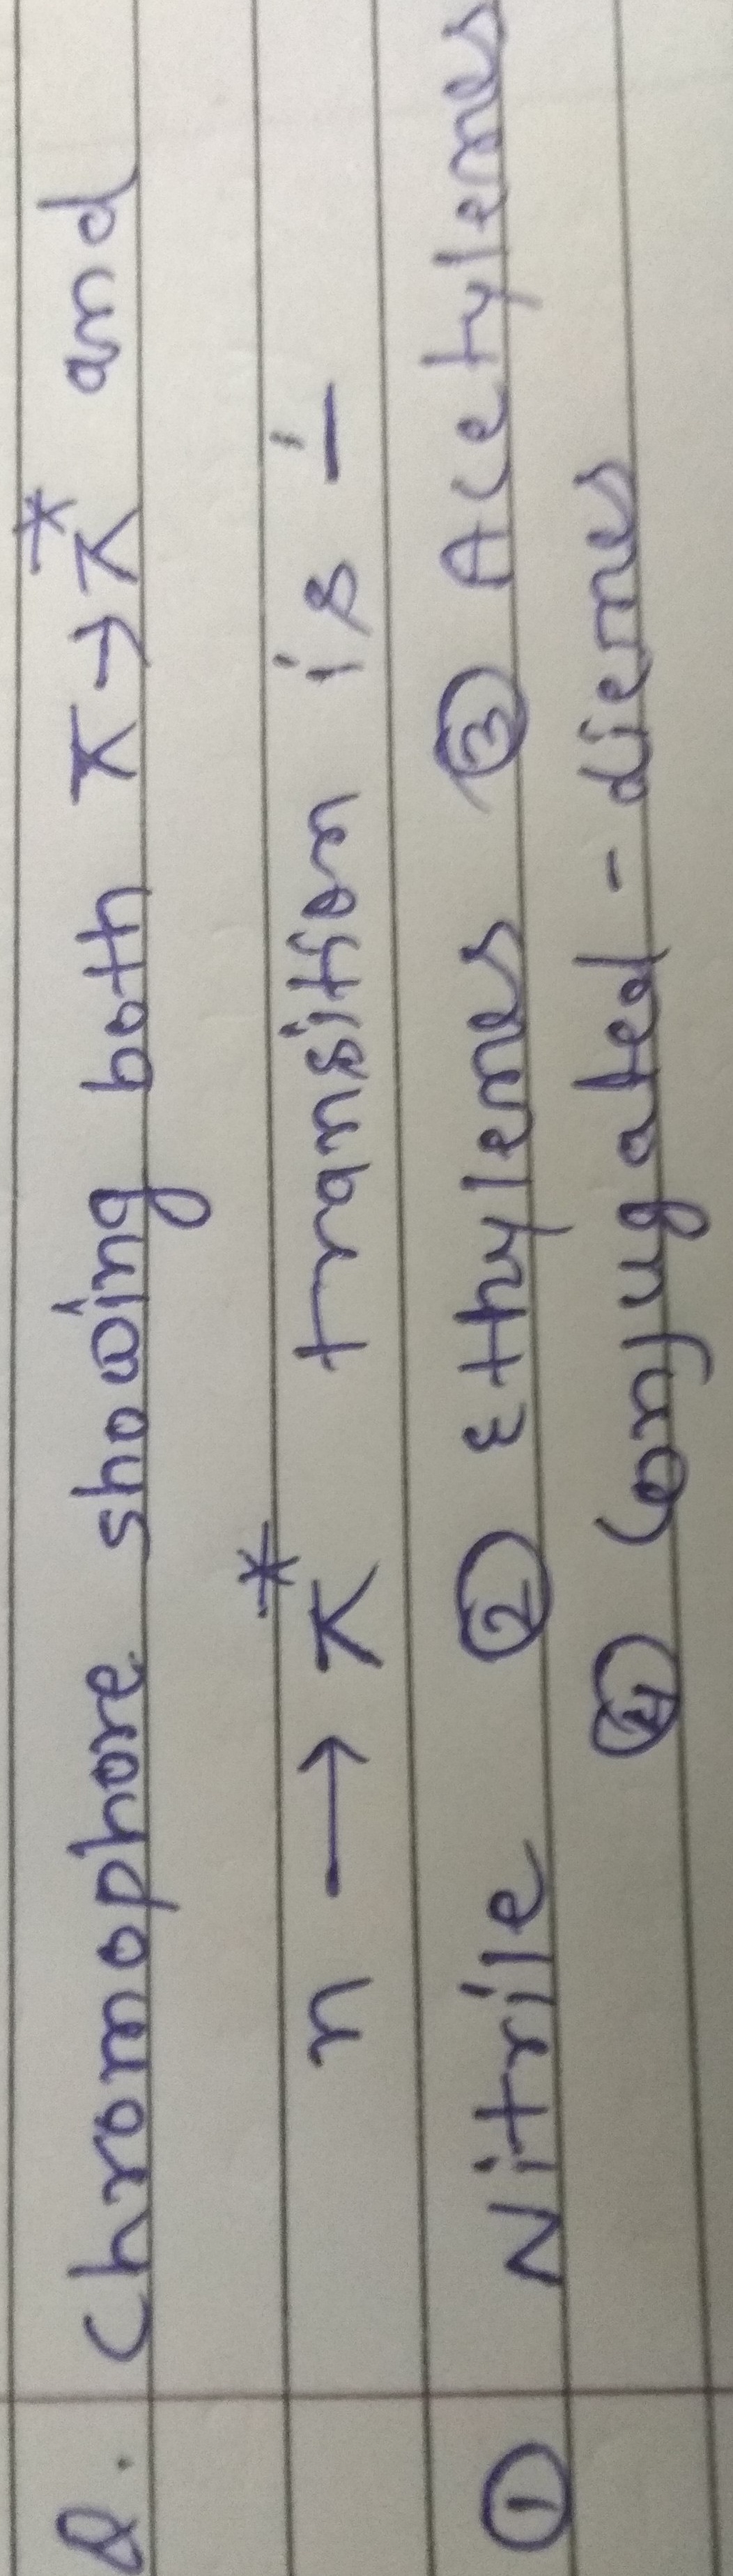 Q. Chromophore showing both π→π* and
n → π* transition is :-
① Nitrile ② Ethylenes ③ Acetylenes
④ Conjugated - dienes